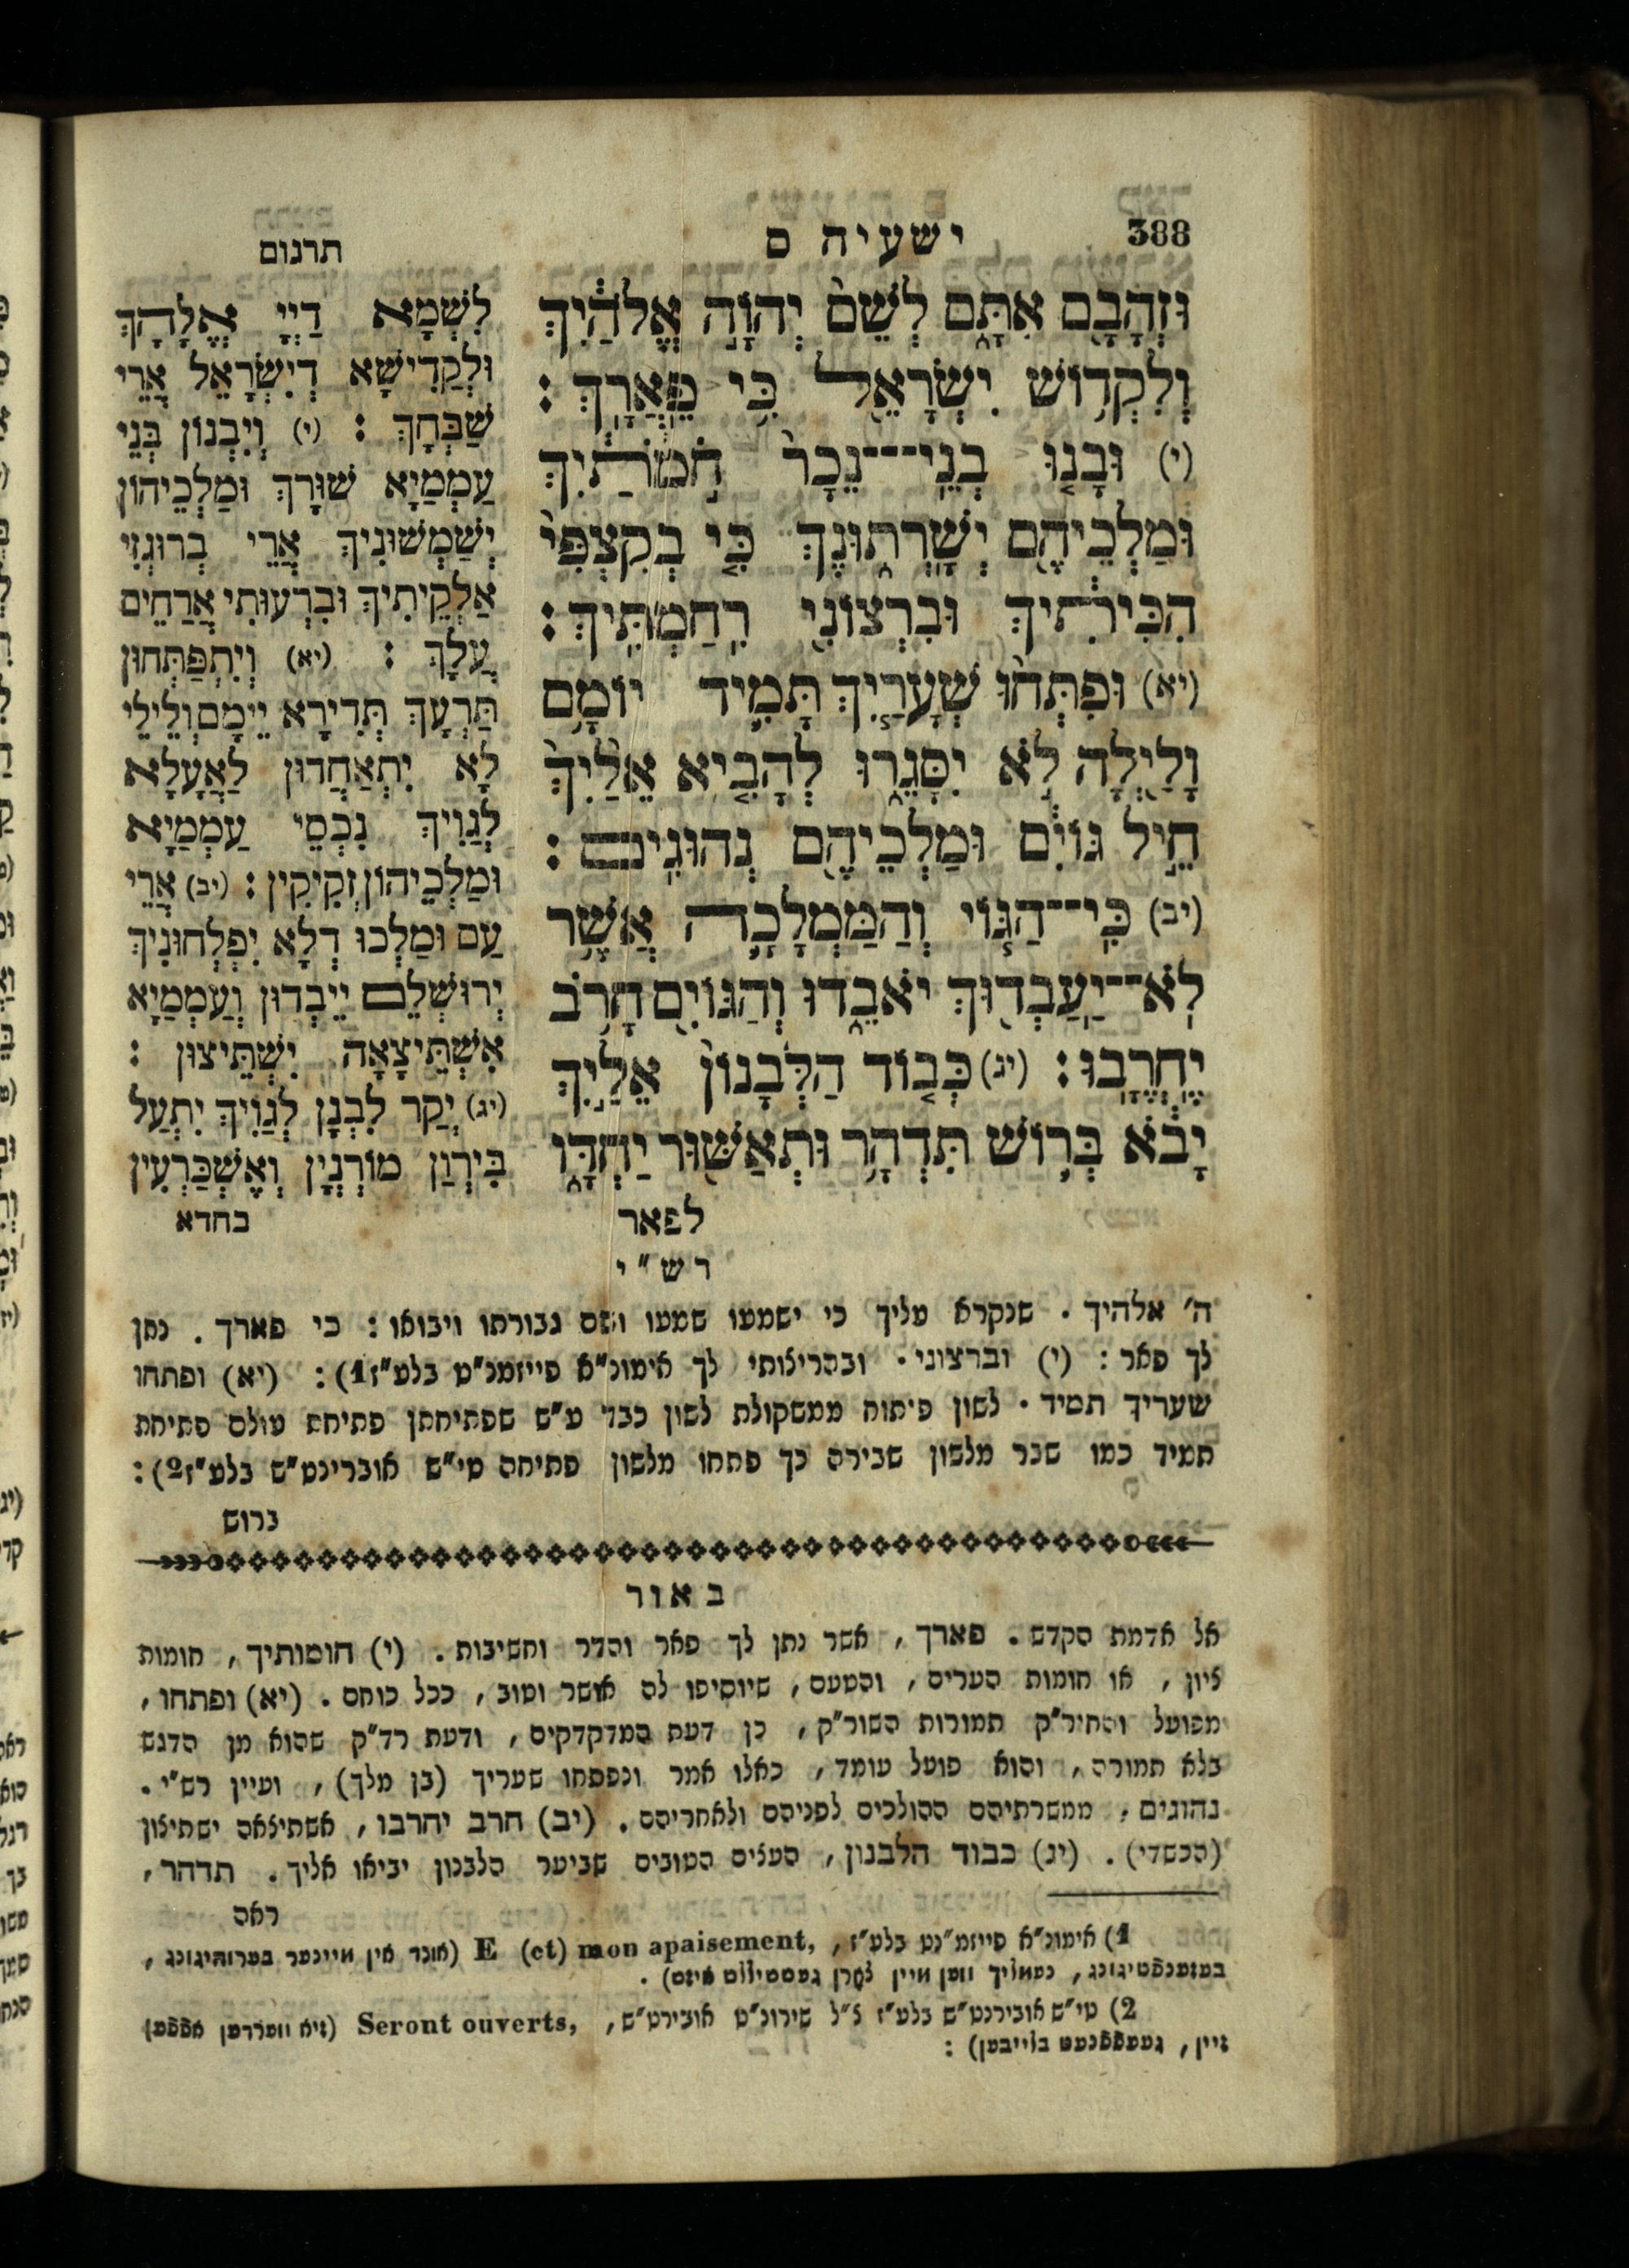 388
ישעיה ס
וּזְהָבָם אִתָּם לְשֵׁם יְהוָֹה אֱלֹהַיִךְ
וְלִקְדוֹשׁ יִשְׂרָאֵל כִּי פֵאֲרָךְ:
(י) וּבָנוּ בְנֵי־נֵכָר חֹמֹתַיִךְ
וּמַלְכֵיהֶם יְשָׁרְתוּנֶךְ כִּי בְקִצְפִּי
הִכִּיתִיךְ וּבִרְצוֹנִי רִחַמְתִּיךְ:
(יא) וּפִתְּחוּ שְׁעָרַיִךְ תָּמִיד יוֹמָם
וָלַיְלָה לֹא יִסָּגֵרוּ לְהָבִיא אֵלַיִךְ
חֵיל גּוֹיִם וּמַלְכֵיהֶם נְהוּגִים:
(יב) כִּי־הַגּוֹי וְהַמַּמְלָכָה אֲשֶׁר
לֹא־יַעַבְדוּךְ יֹאבֵדוּ וְהַגּוֹיִם חָרֹב
יֶחֱרָבוּ: (יג) כְּבוֹד הַלְּבָנוֹן אֵלַיִךְ
יָבֹא בְּרוֹשׁ תִּדְהָר וּתְאַשּׁוּר יַחְדָּו
לפאר
תרגום
לִשְׁמָא דַיְיָ אֱלָהָךְ
וּלְקַדִישָׁא דְיִשְׂרָאֵל אֲרֵי
שַׁבְּחָךְ: (י) וְיִבְנוֹן בְּנֵי
עַמְמַיָא שׁוּרָךְ וּמַלְכֵיהוֹן
יְשַׁמְשׁוּנִיךְ אֲרֵי בְרוּגְזִי
אַלְקֵיתִיךְ וּבִרְעוּתִי אֲרַחֵים
עֲלָךְ: (יא) וְיִתְפַּתְּחוּן
תַּרְעָךְ תְּדִירָא יֵימָם וְלֵילֵי
לָא יִתְאַחֲדוּן לְאַעָלָא
לְגַוִיךְ נִכְסֵי עַמְמַיָא
וּמַלְכֵיהוֹן זְקִיקִין: (יב) אֲרֵי
עַם וּמַלְכוּ דְלָא יִפְלְחוּנִיךְ
יְרוּשְׁלֵם יֵיבְדוּן וְעַמְמַיָא
אִשְׁתֵּיצָאָה יִשְׁתֵּיצוּן:
(יג) יְקַר לִבְנָן לְגַוִיךְ יִתְעַל
בִּירְוַן מוֹרְנְיָן וְאֶשְׁכַּרְעִין
בחדא
רש"י
ה' אלהיך. שנקרא עליך כי ישמעו שמעו ושם גבורתו ויבואו: כי פארך. נתן
לך פאר: (י) וברצוני. ובהריצותי לך אימונ"א פייזמנ"ט בלע"ז1): (יא) ופתחו
שעריך תמיד. לשון פיתוח ממשקולת לשון כבד ע"ש שפתיחתן פתיחת עולם פתיחת
תמיד כמו שבר מלשון שבירה כך פתחו מלשון פתיחה טי"ש אוברינט"ש בלע"ז2):
ברוש
באור
אל אדמת הקדש. פארך, אשר נתן לך פאר והדר וחשיבות. (י) חומותיך, חומות
ציון, או חומות הערים, והטעם, שיוסיפו לה אושר וטוב, ככל כוחם. (יא) ופתחו,
מפועל והחיר"ק תמורות השור"ק, כן דעת המדקדקים, ודעת רד"ק שהוא מן הדגש
בלא תמורה, והוא פועל עומד, כאלו אמר ונפתחו שעריך (בן מלך), ועיין רש"י.
נהוגים, ממשרתיהם ההולכים לפניהם ולאחריהם. (יב) חרב יחרבו, אשתיצאה ישתיצון
(הכשדי). (יג) כבוד הלבנון, העצים הטובים שביער הלבנון יביאו אליך. תדהר,
ראה
1) אימונ"א פייזמ"נט בלע"ז, E (et) mon apaisement, (אונד אין מיינער בערוהיגונג,
בעזענפטיגונג, נעמליך ווען מיין צֿארן געשטיללט איזט).
2) טי"ש אובירנט"ש בלע"ז צ"ל שירונ"ט אובירט"ש, Seront ouverts, (זיא ווערדען אפֿפֿען
זיין, געעפֿפֿנעט בלייבען):